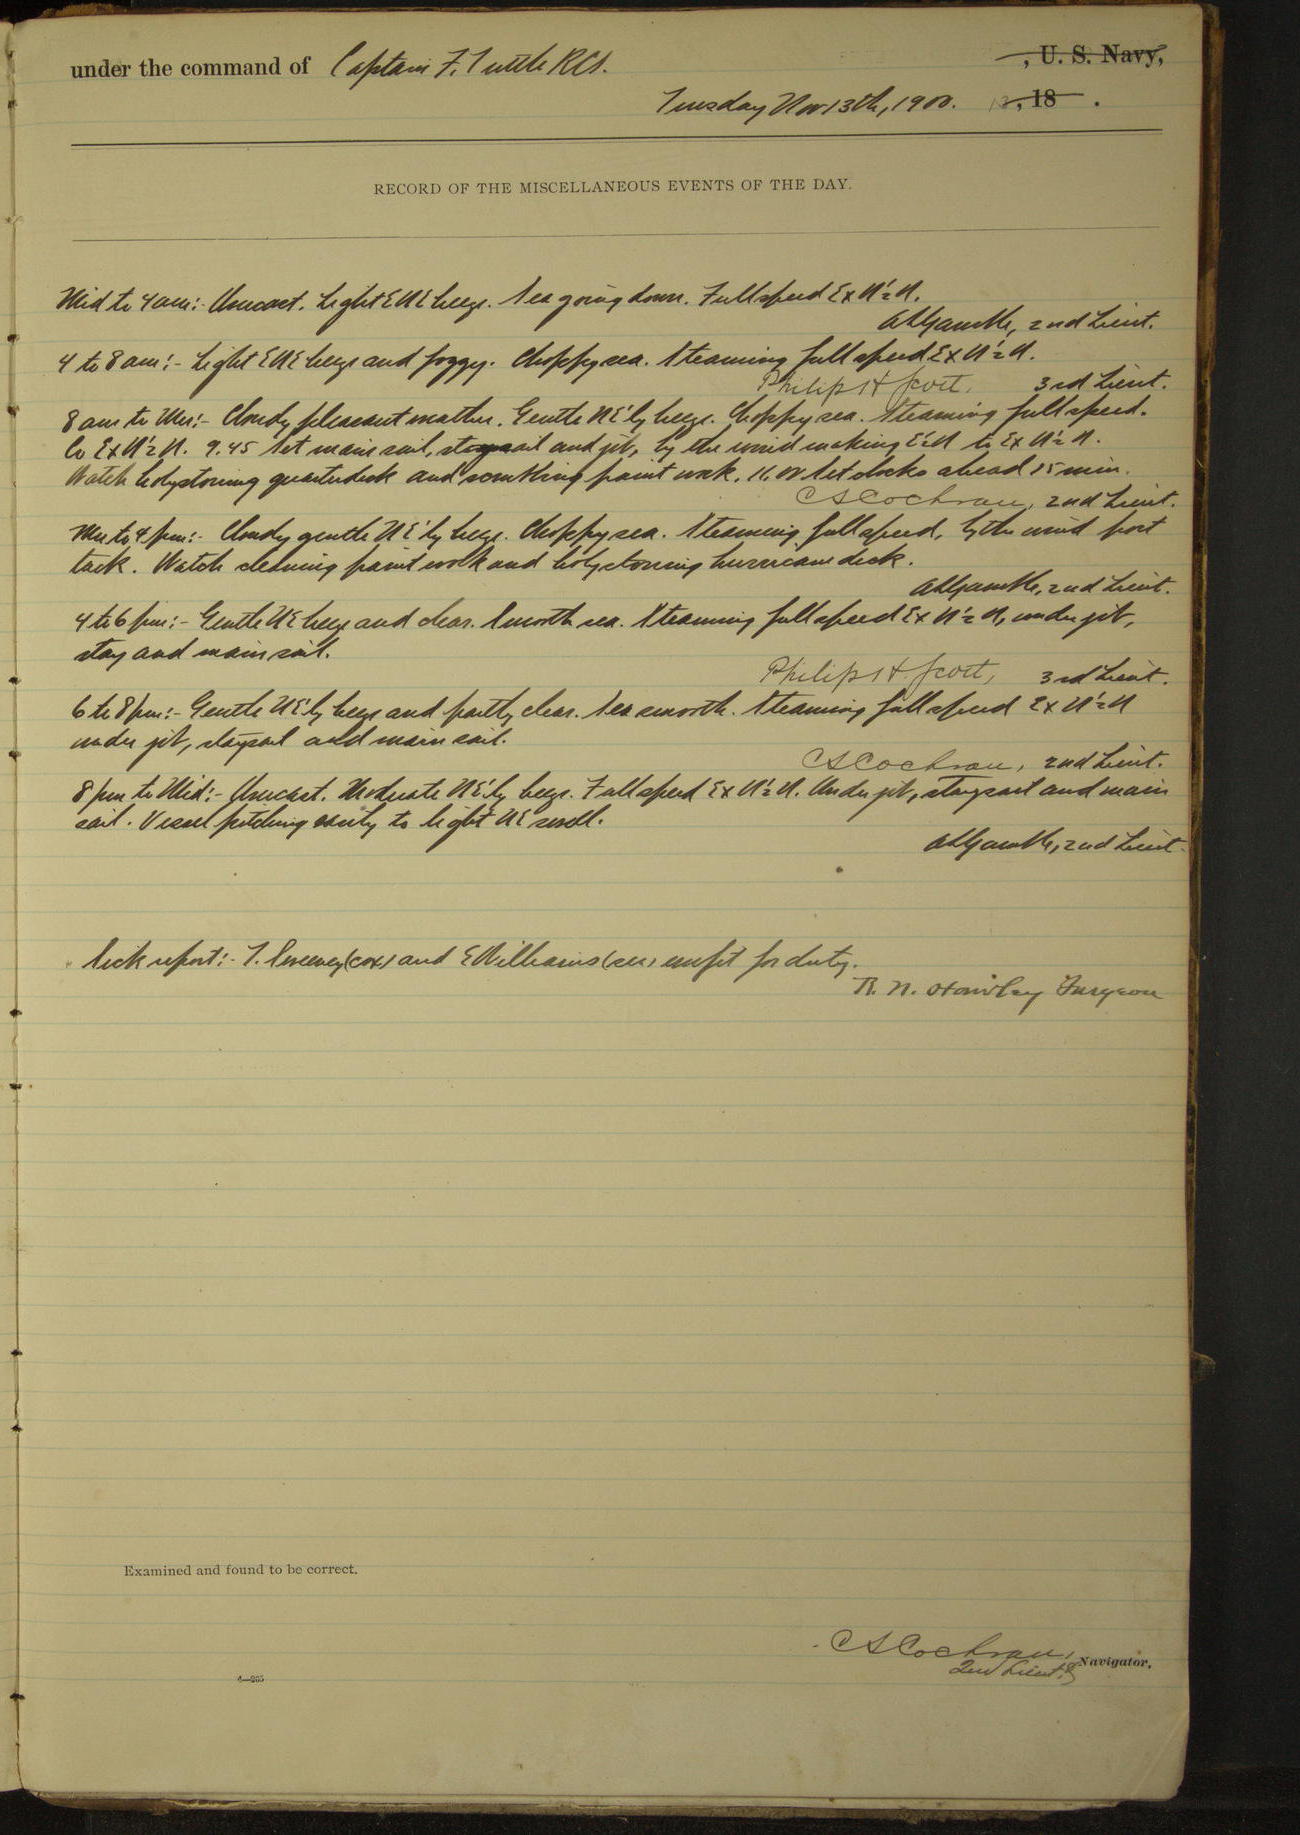 under the command of Captain F. Tuttle RCS. , U. S. Navy,
Tuesday Nov 13th, 1900. , 18 .
RECORD OF THE MISCELLANEOUS EVENTS OF THE DAY.
Mid to 4 am:- Overcast. Light ENE breeze. Sea going down. Full speed ExN½N.
A L Gamble, 2nd Lieut.
4 to 8 am:- Light ENE breeze and foggy. Choppy sea. Steaming full speed ExN½N.
Philip H Scott, 3rd Lieut.
8 am to Mer:- Cloudy pleasant weather. Gentle NE'ly breeze. Choppy sea. Steaming full speed.
Co ExN½N. 9.45 Set main sail, staysail and jib, by the wind making E½N to ExN½N.
Watch holystoning quarterdeck and paint work. 11.00 Set clocks ahead 15 min.
C S Cochran, 2nd Lieut.
Mer to 4 pm:- Cloudy gentle NE'ly breeze. Choppy sea. Steaming full speed, by the wind port
tack. Watch cleaning paint work and holystoning hurricane deck.
A L Gamble, 2nd Lieut.
4 to 6 pm:- Gentle NE breeze and clear. Smooth sea. Steaming full speed ExN½N, under jib,
stay and main sail.
Philip H. Scott, 3rd Lieut.
6 to 8 pm:- Gentle NE'ly breeze and partly clear. Sea smooth. Steaming full speed ExN½N
under jib, staysail and main sail.
C S Cochran, 2nd Lieut.
8 pm to Mid:- Overcast. Moderate NE'ly breeze. Full speed ExN½N. Under jib, staysail and main
sail. Vessel pitching easily to light NE swell.
A L Gamble, 2nd Lieut.
Sick report:- T. Sweeney (cox) and E Williams (sea) unfit for duty.
R. N. Hawley Surgeon
Examined and found to be correct.
C S Cochran,
2nd Lieut. & Navigator.
6—265